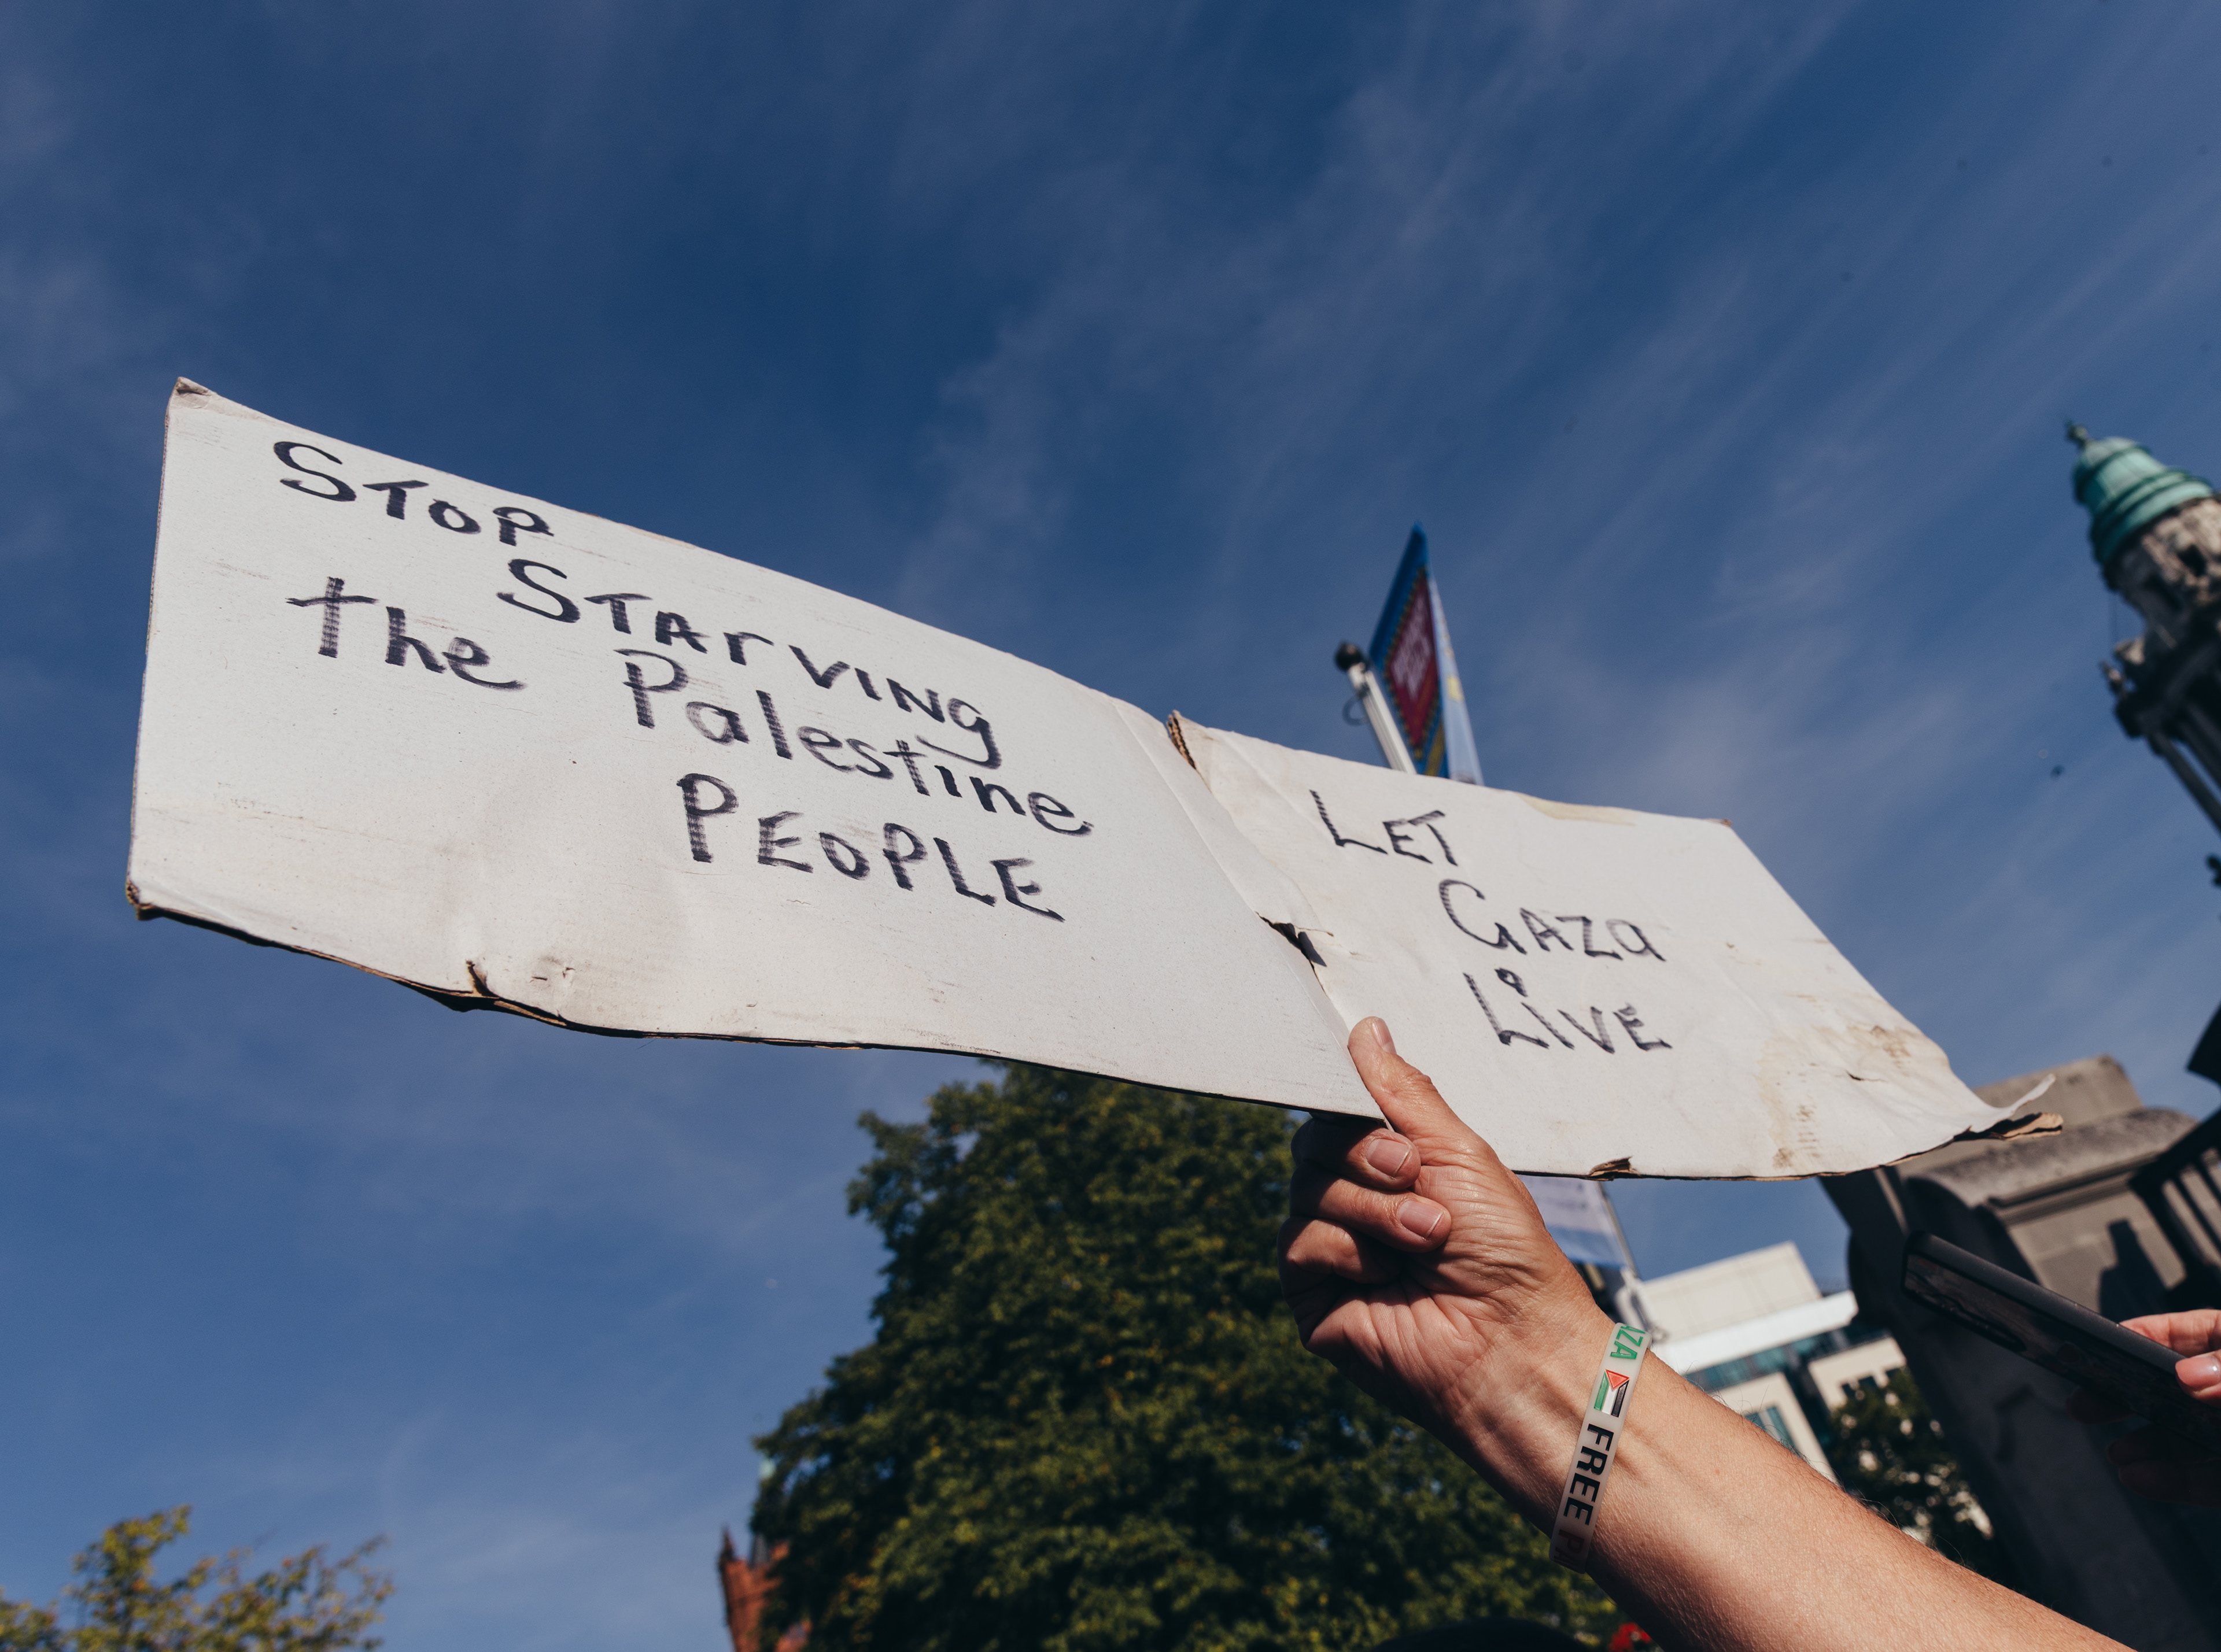 STOP
STArVINg
the Palestine
PEOPLE
LET
GAZa
LIVE
AZA
FREE P